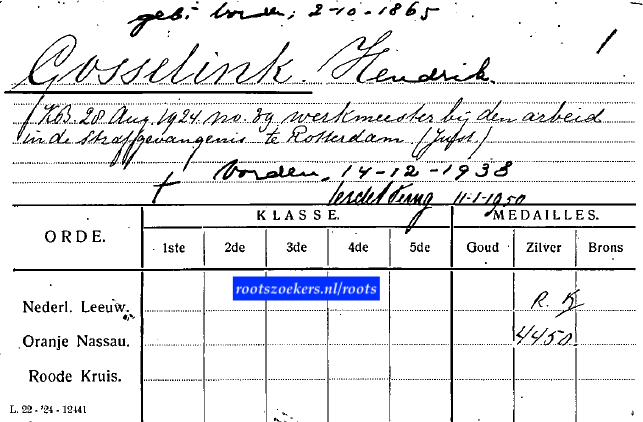 geb: Vorden, 2-10-1865
1
Gosselink. Hendrik.
KB. 28 Aug. 1924 no. 39 werkmeester bij den arbeid
in de Strafgevangenis te Rotterdam (Just.)
† Vorden, 14-12-1938
terug 11-1-1950
KLASSE. MEDAILLES.
ORDE. 1ste 2de 3de 4de 5de Goud Zilver Brons
rootszoekers.nl/roots
Nederl. Leeuw. R. K
Oranje Nassau. 4450
Roode Kruis.
L. 22 - '24 - 12441